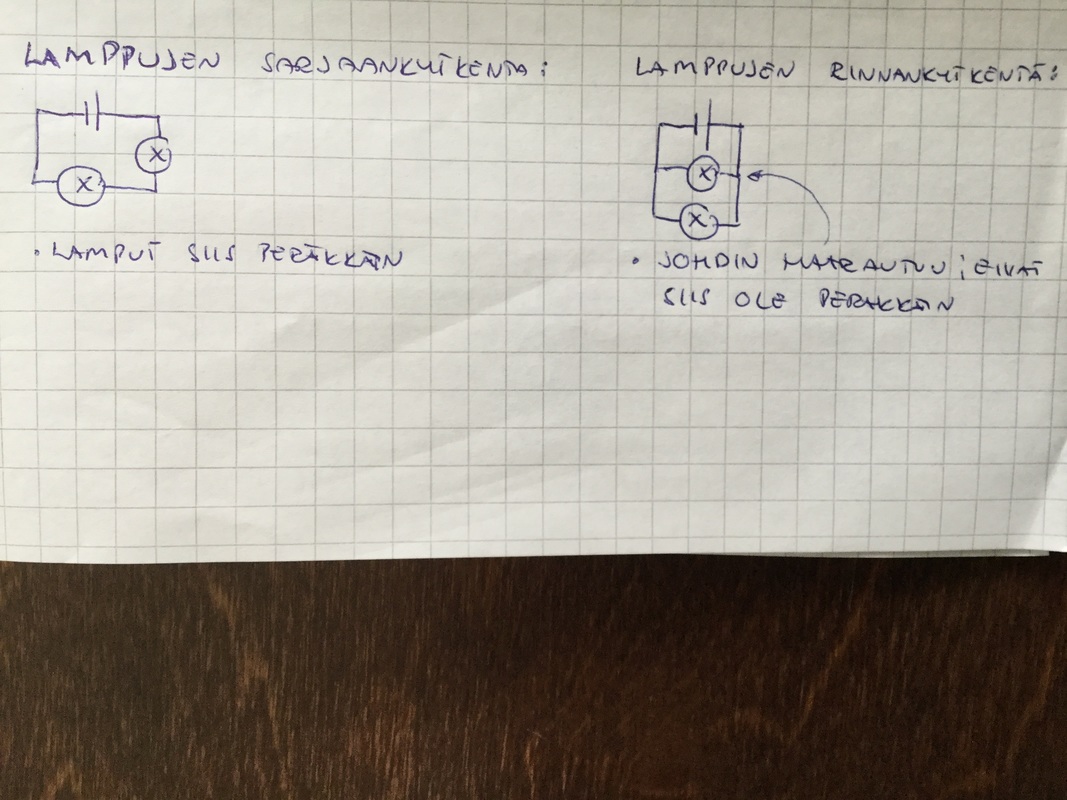 LAMPPUJEN SARJAANKYTKENTÄ:
LAMPPUJEN RINNANKYTKENTÄ:
• LAMPUT SIIS PERÄKKÄIN
• JOHDIN HAARAUTUU; EIVÄT
SIIS OLE PERÄKKÄIN